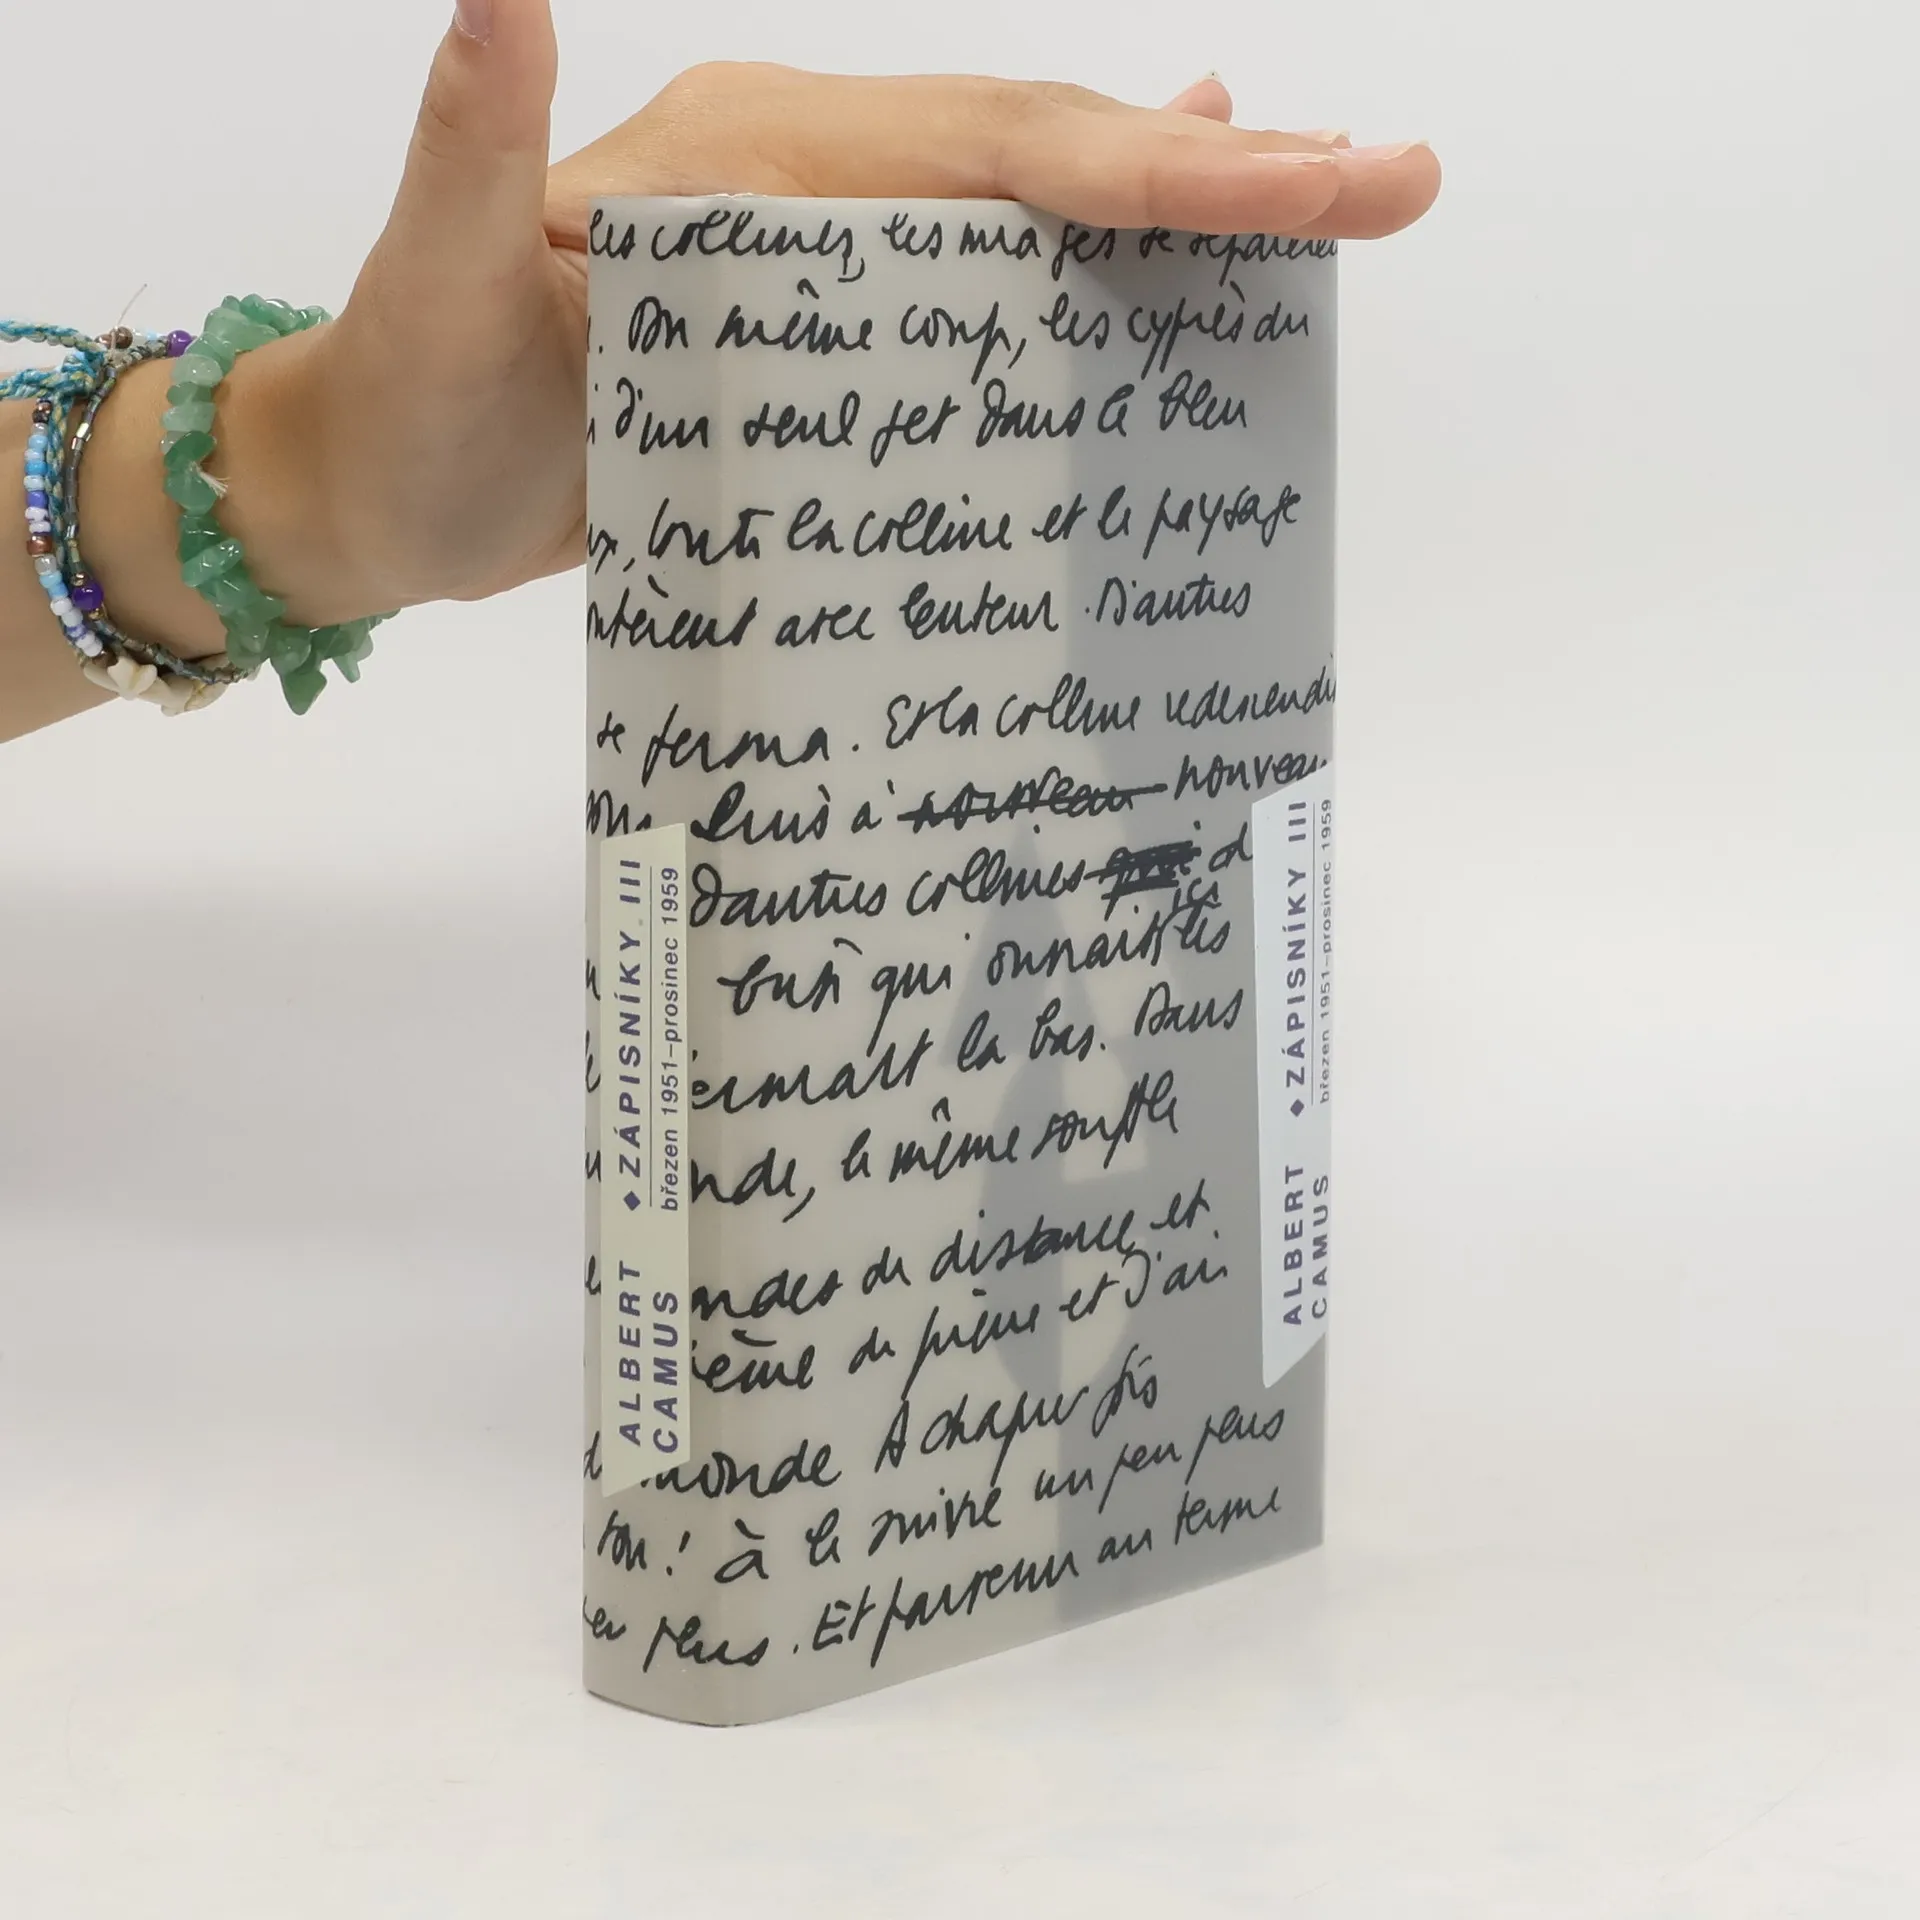 les collines, les nuages se séparèrent
. Du même coup, les cyprès du
d'un seul jet dans le bleu
, toute la colline et le paysage
avec lenteur. D'autres
se ferma. Et la colline redescendit
Puis à nouveau nouveau
D'autres collines
qui ouvrait les ici
là bas. Dans
nde, le même souffle
de distance et
de pierre et J'ai
monde A chaque fois
ton! à le suivre un peu plus
peu plus. Et parvenu au terme
ALBERT CAMUS ◆ ZÁPISNÍKY III
březen 1951–prosinec 1959
ALBERT CAMUS ◆ ZÁPISNÍKY III
březen 1951–prosinec 1959